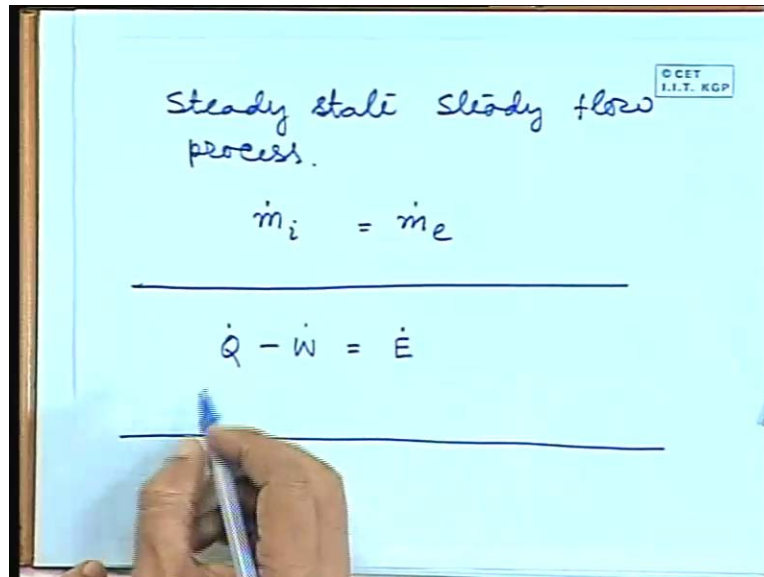 © CET
I.I.T. KGP
Steady state steady flow
process.
ṁi = ṁe
Q̇ - Ẇ = Ė